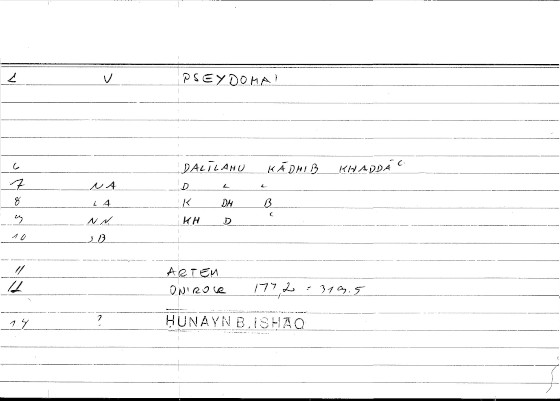 1 V PSEYDOMAI
6 DALĪLAHU KĀDHIB KHADDĀʿ
7 NA D L L
8 ʿA K DH B
9 NN KH D ʿ
10 ,B
11 ARTEM
12 ONIROCR 177,2 = 319.5
14 ? HUNAYN B. ISHAQ